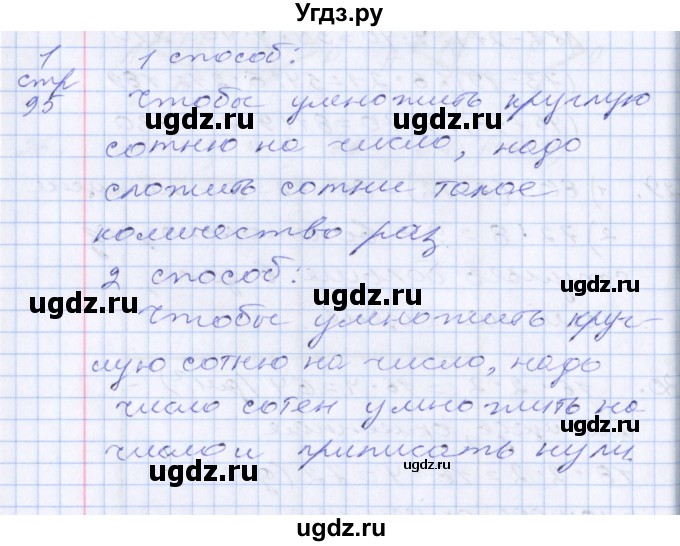 Угдз.ру
1 1 способ:
стр
95 Чтобы умножить круглую
ugdz.ru ugdz.ru
сотню на число, надо
сложить сотни такое
количество раз
ugdz.ru
2 способ:
ugdz.ru ugdz.ru
Чтобы умножить круг-
лую сотню на число, надо
число сотен умножить на
ugdz.ru
число и приписать нули.
ugdz.ru ugdz.ru
ugdz.ru
ugdz.ru